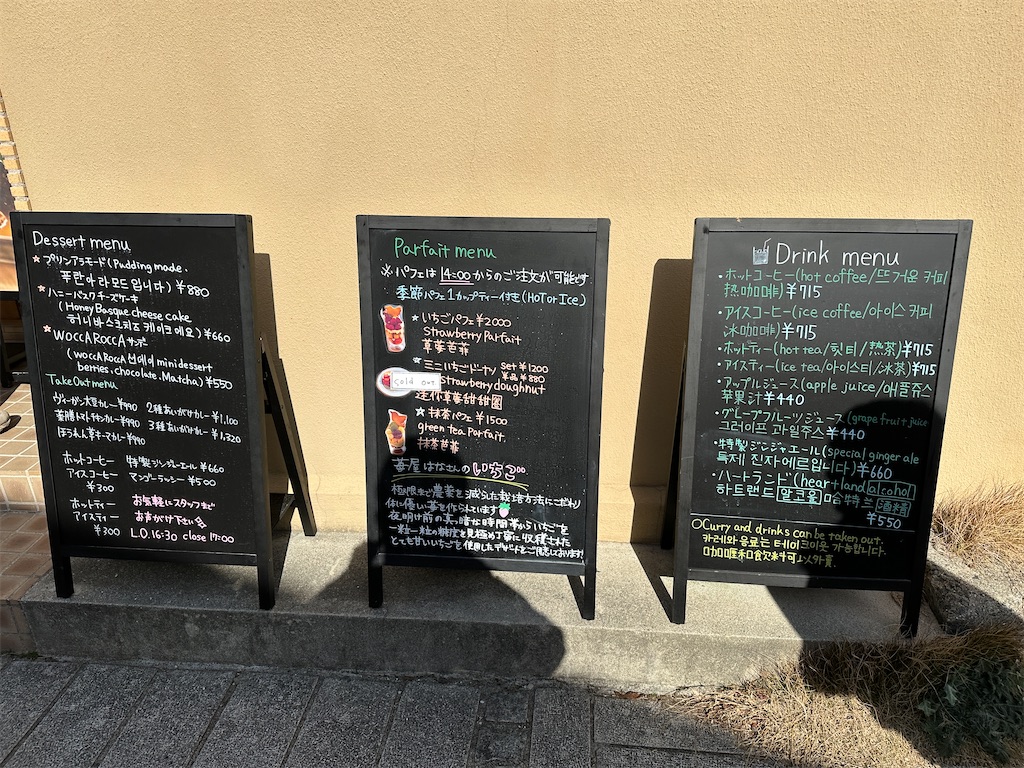 Dessert menu
★プリンアラモード(Pudding made.
푸딘아라모드입니다) ¥880
★ハニーバスクチーズケーキ
(Honey Basque cheese cake
허니바스크치즈케이크에요) ¥660
★WOCCA ROCCA サンデー
(WOCCA ROCCA 선데이 mini dessert
berries.chocolate.Matcha) ¥550
Take Out menu
ヴィーガン大豆カレー ¥990
薬膳トマトチキンカレー ¥990
ほうれん草キーマカレー ¥990
2種あいがけカレー ¥1,100
3種あいがけカレー ¥1,320
ホットコーヒー
アイスコーヒー
¥300
ホットティー
アイスティー
¥300
特製ジンジャーエール ¥660
マンゴーラッシー ¥500
お気軽にスタッフまで
お声がけ下さい
L.O.16:30 close 17:00
Parfait menu
※パフェは14:00からのご注文が可能です
季節パフェ1カップティー付き(HOT or Ice)
★いちごパフェ ¥2000
Strawberry Parfait
草莓芭菲
★ミニいちごドーナツ Set ¥1200
単品 ¥880
Sold out
Strawberry doughnut
迷你草莓甜甜圈
★抹茶パフェ ¥1500
green tea Parfait.
抹茶芭菲
苺屋はなさんのいちご
極限まで農薬を減らした栽培方法にこだわり
体に優しい苺を作られています
夜明け前の真っ暗な時間帯からいちごを
一粒一粒の糖度を見極め丁寧に収穫された
とても甘いいちごを使用したデザートをご用意しております!
Drink menu
・ホットコーヒー(hot coffee/뜨거운 커피
热咖啡) ¥715
・アイスコーヒー(ice coffee/아이스 커피
冰咖啡) ¥715
・ホットティー(hot tea/핫티/热茶) ¥715
・アイスティー(ice tea/아이스티/冰茶) ¥715
・アップルジュース(apple juice/애플쥬스
苹果汁 ¥440
・グレープフルーツジュース(grape fruit juice
그레이프 과일주스 ¥440
・特製ジンジャエール(special ginger ale
특제 진자에르입니다) ¥660
・ハートランド(heart land alcohol
하트랜드 알코올 哈特兰 酒精
¥550
○Curry and drinks can be taken out.
카레와 음료는 테이크아웃 가능합니다.
咖喱和飲料可以外賣.